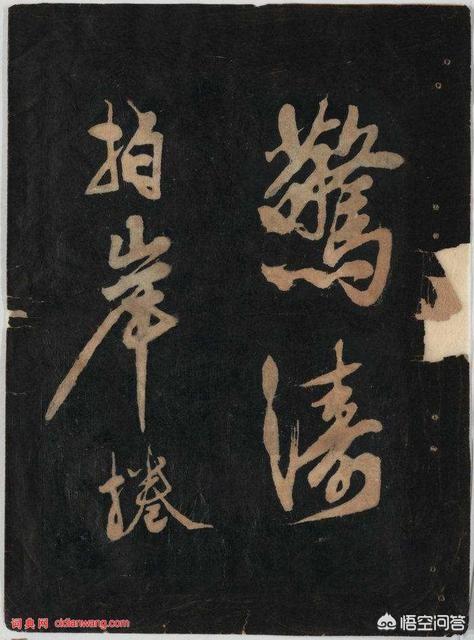 驚濤
拍岸捲
词典网 cidianwang.com
悟空问答